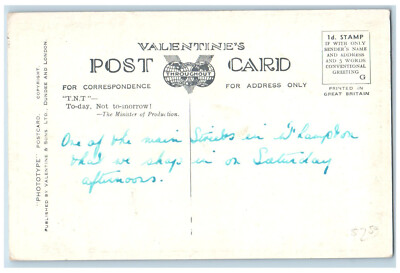 VALENTINE'S
POST CARD
THROUGHOUT
FOR CORRESPONDENCE
FOR ADDRESS ONLY
"T.N.T"—
To-day, Not to-morrow!
—The Minister of Production.
1d. STAMP
IF WITH ONLY
SENDER'S NAME
AND ADDRESS
AND 5 WORDS
CONVENTIONAL
GREETING
G
PRINTED IN
GREAT BRITAIN
"PHOTOTYPE" POSTCARD. COPYRIGHT.
PUBLISHED BY VALENTINE & SONS, LTD., DUNDEE AND LONDON.
One of the main Streets in
that we shop in on Saturday
afternoons.